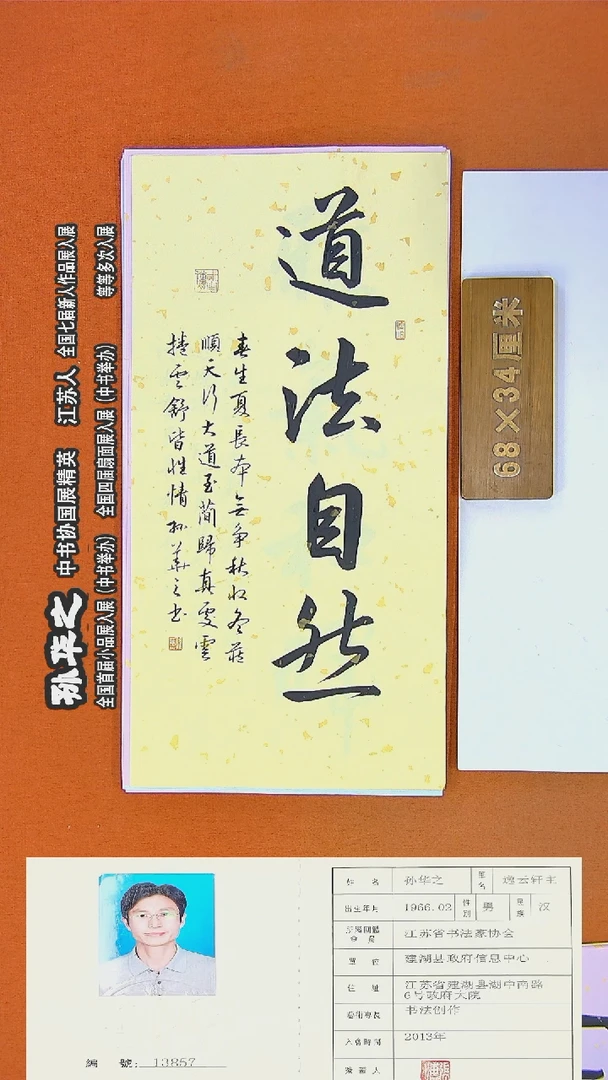 道法自然
春生夏長本無爭秋收冬藏
順天行大道至簡歸真雯雲
捲雲舒皆性情孙華之书
68×34厘米
孙华之 中书协国展精英 江苏人 全国七届新人作品展入展
全国首届小品展入展（中书举办） 全国四届扇面展入展（中书举办） 等等多次入展
編 號：13857
姓名 孙华之 笔名 逸云轩主
出生年月 1966.02 性别 男 民族 汉
江苏省书法家协会
單位 建湖县政府信息中心
住址 江苏省建湖县湖中南路
6号政府大院
书法创作
入會時間 2013年